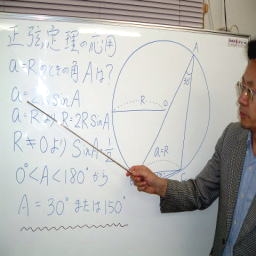 正弦定理の応用
a=Rのときの角Aは?
a=2RsinA
a=RよりR=2RsinA
R≠0より SinA=1/2
0°<A<180°から
A=30°または150°
A
30°
R
O
a=R
C